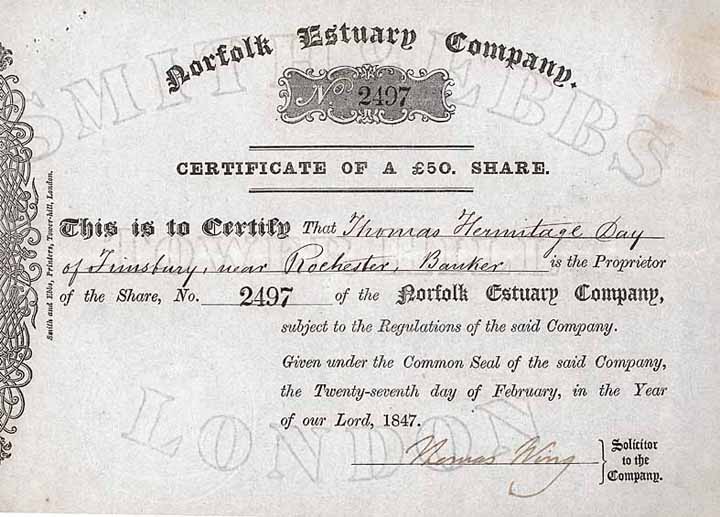 Norfolk Estuary Company.
No. 2497
CERTIFICATE OF A £50. SHARE.
This is to Certify That Thomas Hermitage Day
of Finsbury, near Rochester, Banker is the Proprietor
of the Share, No. 2497 of the Norfolk Estuary Company,
subject to the Regulations of the said Company.
Given under the Common Seal of the said Company,
the Twenty-seventh day of February, in the Year
of our Lord, 1847.
Thomas Wing
Solicitor
to the
Company.
Smith and Ebbs, Printers, Tower-hill, London.
SMITH & EBBS
TOWER HILL
LONDON